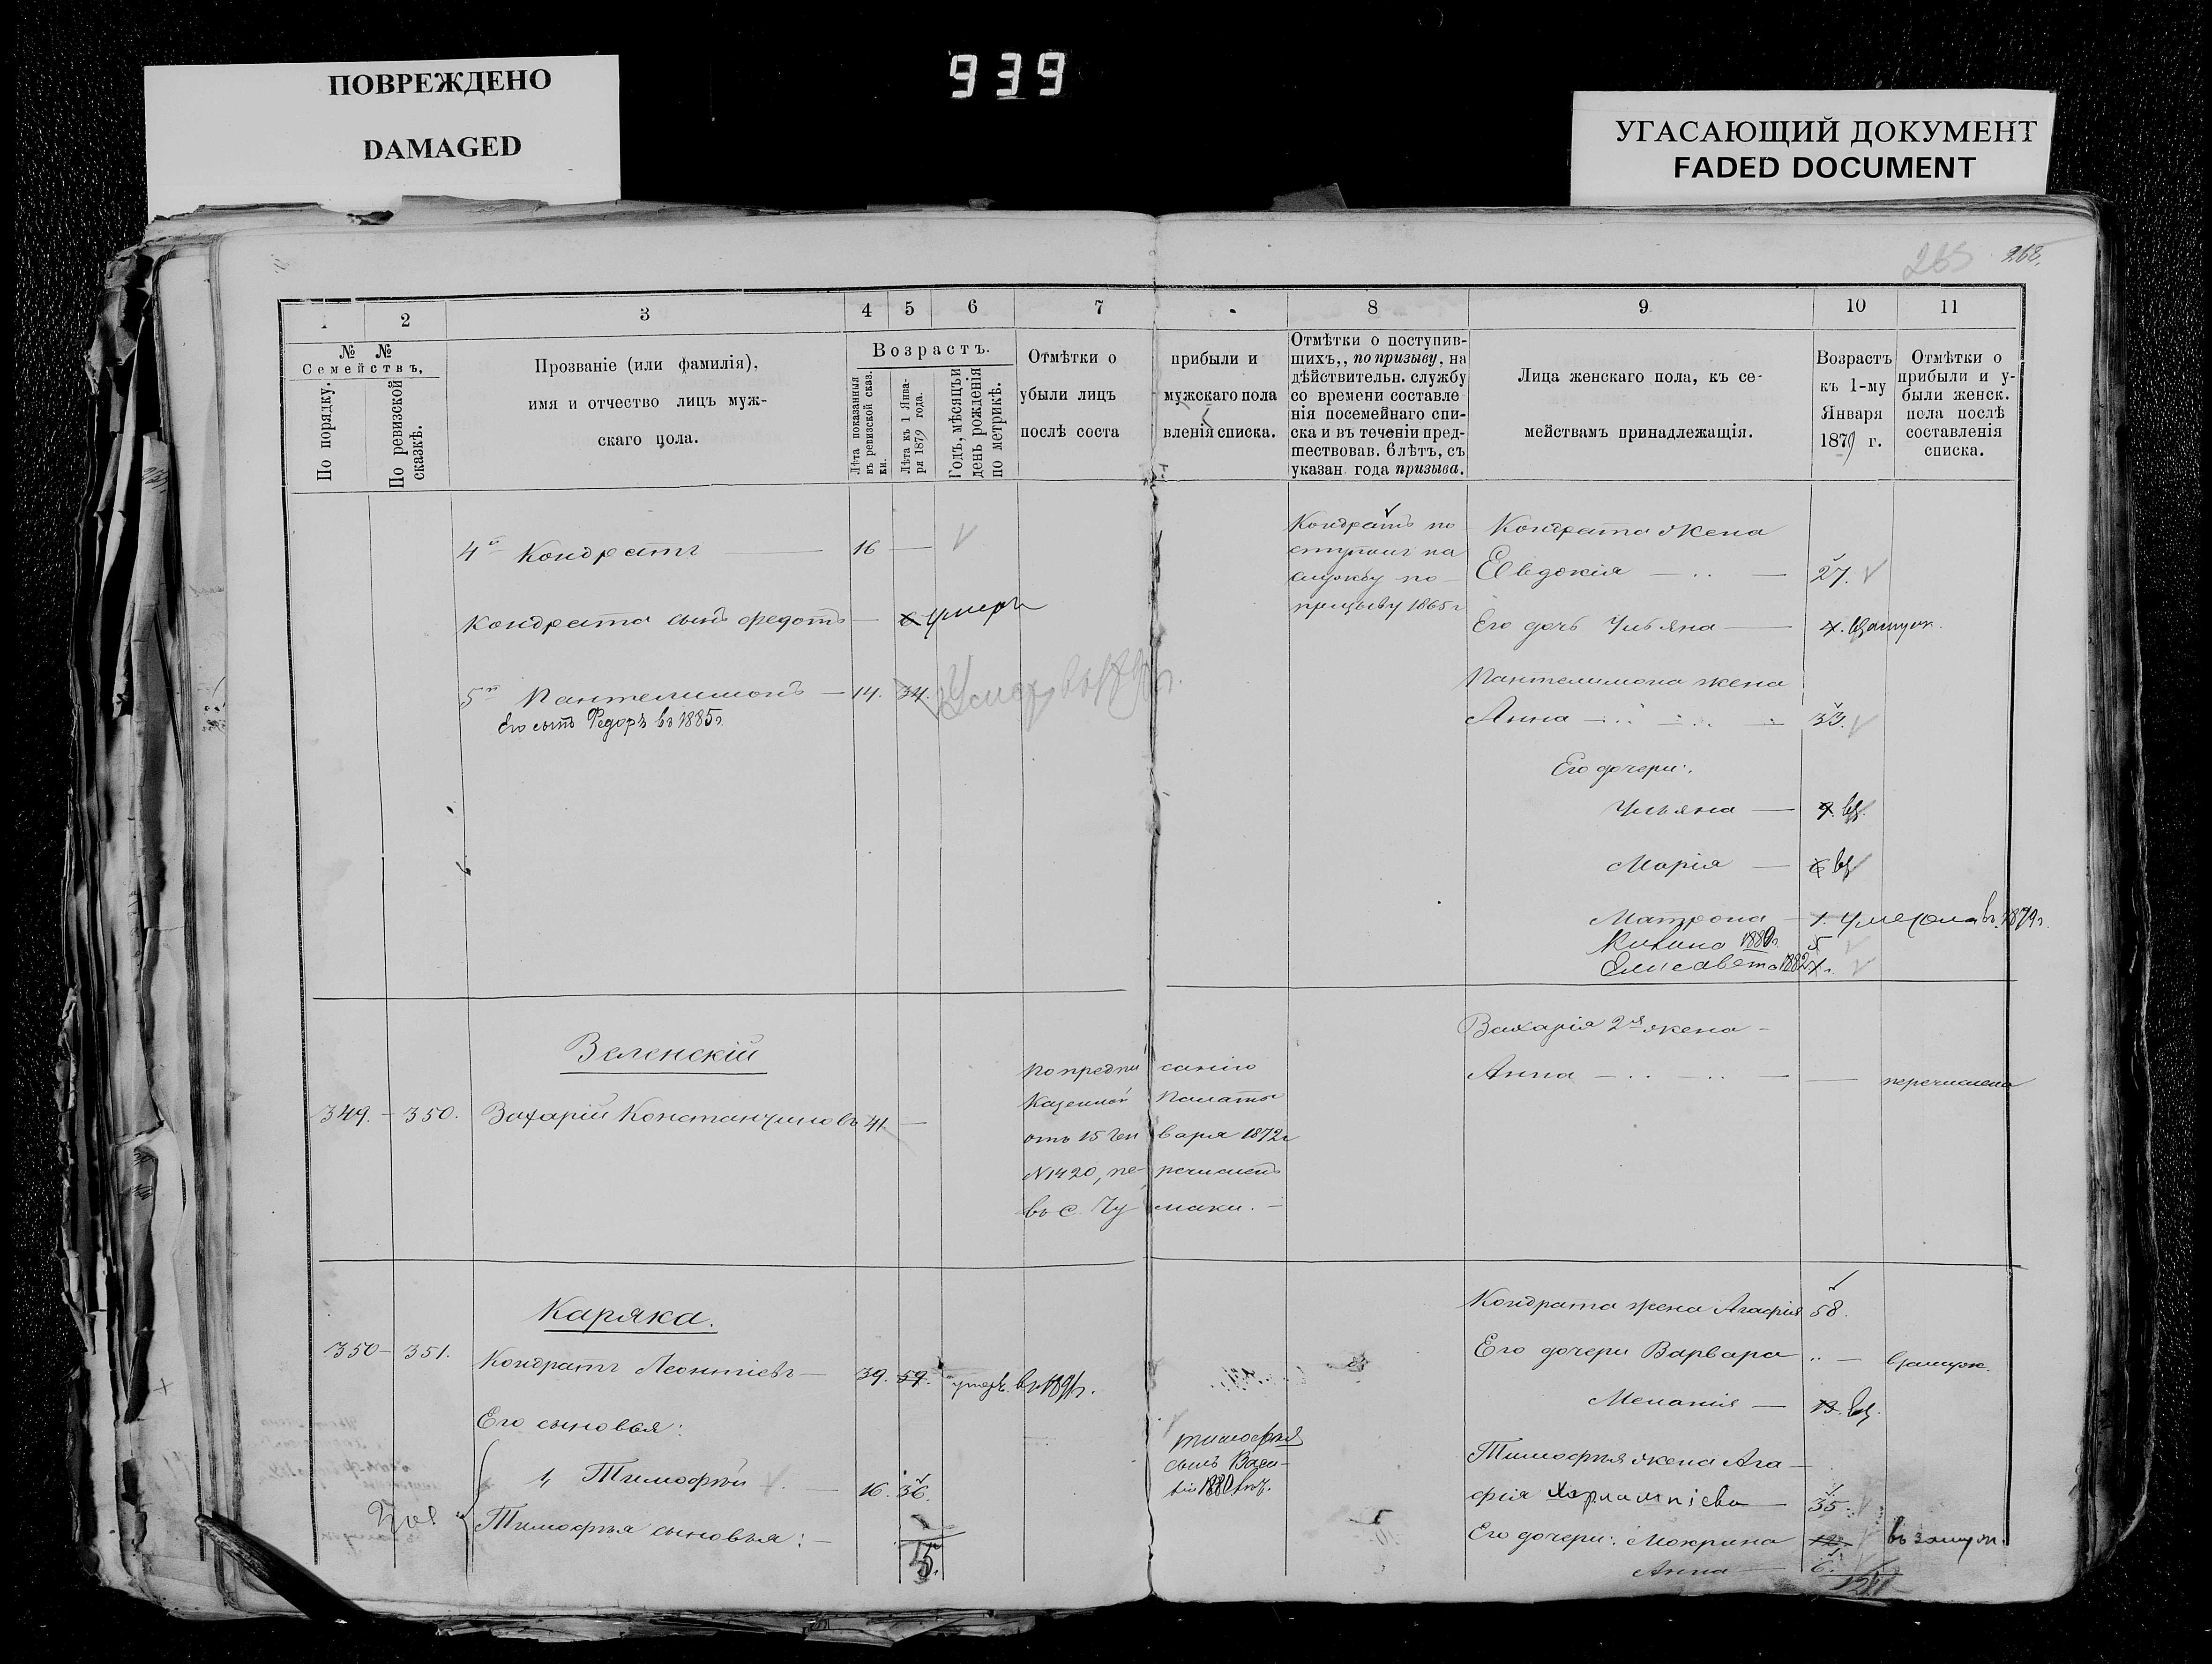 ПОВРЕЖДЕНО
DAMAGED
939
УГАСАЮЩИЙ ДОКУМЕНТ
FADED DOCUMENT
265 268.
1 2 3 4 5 6 7 8 9 10 11
№ № Семействъ,
По порядку.
По ревизской сказкѣ.
Прозваніе (или фамилія),
имя и отчество лицъ муж-
скаго пола.
Возрастъ.
Лѣта показанныя
въ ревизской сказ.
ки.
Лѣта къ 1 Янва-
ря 1879 года.
Годъ, мѣсяцъ и
день рожденія
по метрикѣ.
Отмѣтки о прибыли и
убыли лицъ мужскаго пола
послѣ соста вленія списка.
Отмѣтки о поступив-
шихъ,, по призыву, на
дѣйствительн. службу
со времени составле
нія посемейнаго спи-
ска и въ теченіи пред-
шествовав. 6лѣтъ, съ
указан. года призыва.
Лица женскаго пола, къ се-
мействамъ принадлежащія.
Возрастъ
къ 1-му
Января
1879 г.
Отмѣтки о
прибыли и у-
были женск.
пола послѣ
составленія
списка.
4й Кондратъ — 16 —
Кондратъ по
ступилъ на
службу по
призыву 1865 г
Кондрата жена
Евдокія — 27.
Кондрата сынъ Федотъ — 6 умеръ
Его дочь Ульяна — взамуж.
5й Пантелимонъ — 14. 34. Умер
Его сынъ Федоръ въ 1885 г.
Пантелимона жена
Анна — 33.
Его дочери:
Ульяна — 9. вз.
Марія — 6 вз
Матрона — 1. умерла въ 1879 г.
1880 г. 5
Елисавета 1882
Зеленскій
349. — 350. Захарій Константиновъ 41 —
по предпи санію
Казенной Палаты
отъ 15 Ген варя 1872 г
№1420, пе- речисленъ
въ с. Чу маки. —
Захарія 2я жена —
Анна — перечислена
Каряка.
350 — 351. Кондратъ Леонтіевъ — 39. 59. умеръ въ 1891 г.
Кондрата жена Агафія 58.
Его дочери Варвара „ — взамуж.
Меланія — 13. вз.
Его сыновья:
1, Тимофѣй — 16. 36.
Тимофѣя
сынъ Васи-
лій 1880
Тимофѣя жена Ага-
фія Харлампіева 35.
Тимофѣя сыновья: —
Его дочери: Мокрина 12. въ замуж.
Анна — 6.